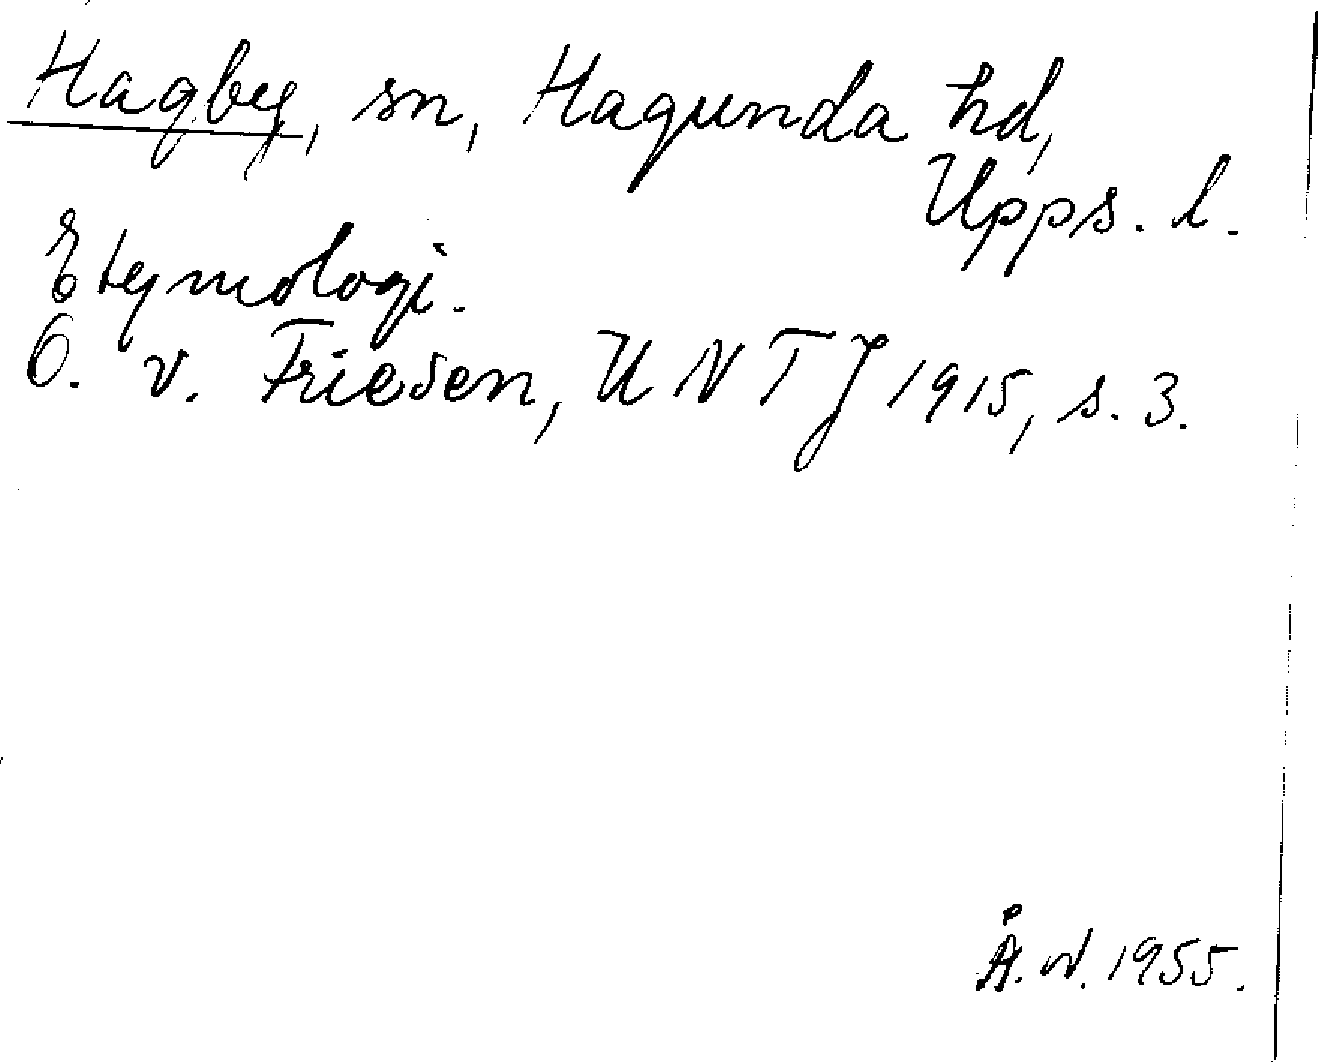 Hagby, sn, Hagunda hd,
Upps. l.
Etymologi.
O. v. Friesen, UNTJ 1915, s. 3.
Å. W. 1955.